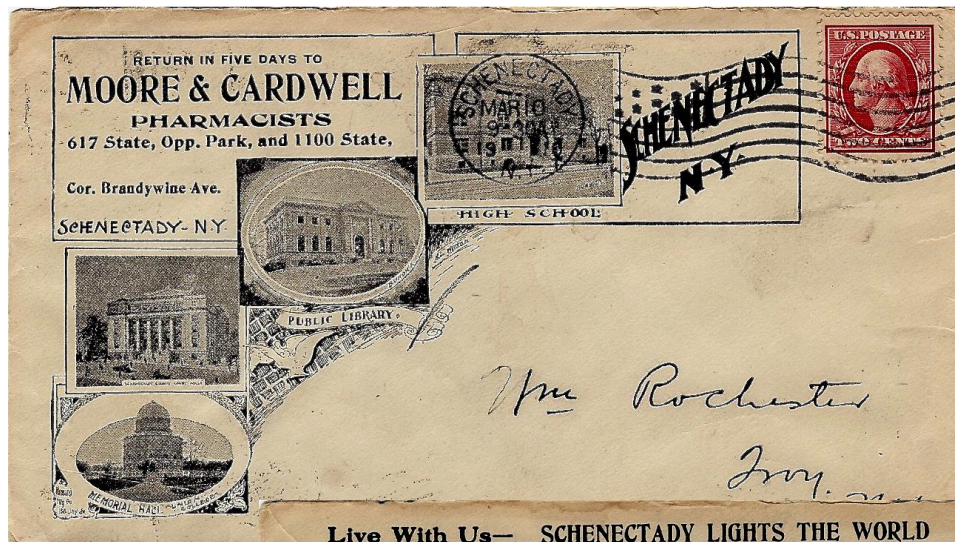 RETURN IN FIVE DAYS TO
MOORE & CARDWELL
PHARMACISTS
617 State, Opp. Park, and 1100 State,
Cor. Brandywine Ave.
SCHENECTADY - N.Y.
SCHENECTADY
MAR 10
N.Y.
SCHENECTADY
N-Y-
U.S. POSTAGE
TWO CENTS
HIGH SCHOOL
PUBLIC LIBRARY.
MEMORIAL HALL
UNION COLLEGE
Wm Rochester
Troy.
Live With Us— SCHENECTADY LIGHTS THE WORLD